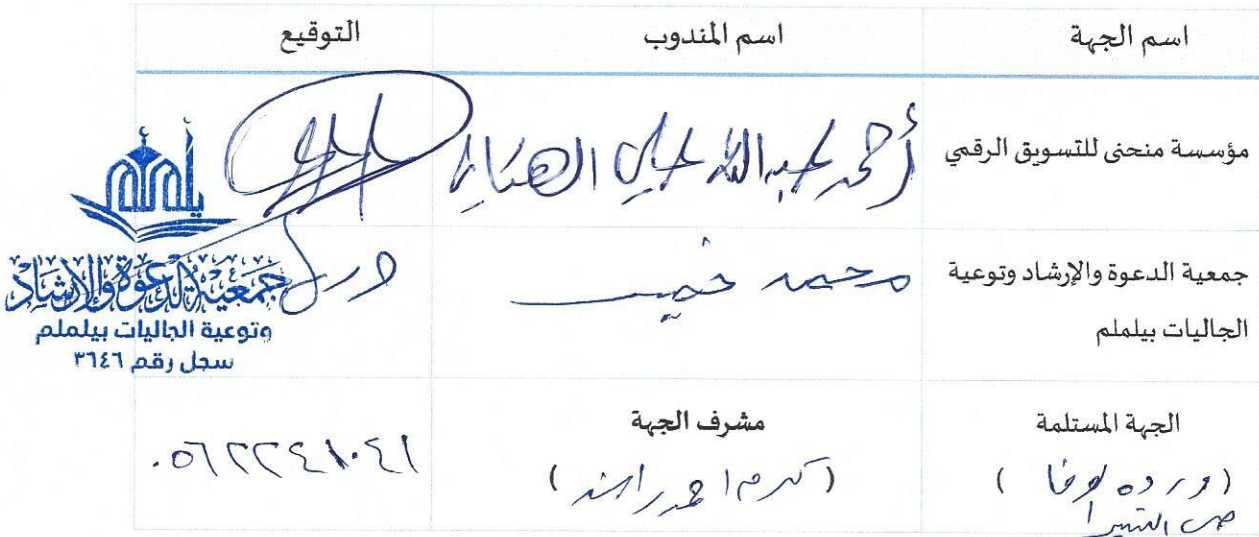 اسم الجهة اسم المندوب التوقيع
مؤسسة منحنى للتسويق الرقمي أحمد عبدالله علي
جمعية الدعوة والإرشاد وتوعية
الجاليات بيلملم
محمد
يلملم
جمعية الدعوة والإرشاد
وتوعية الجاليات بيلملم
سجل رقم ٣٦٤٦
الجهة المستلمة مشرف الجهة
( ورده لوفا ) (اكرم احمد راشد) ٠٥٦٢٢٤١٠٤١